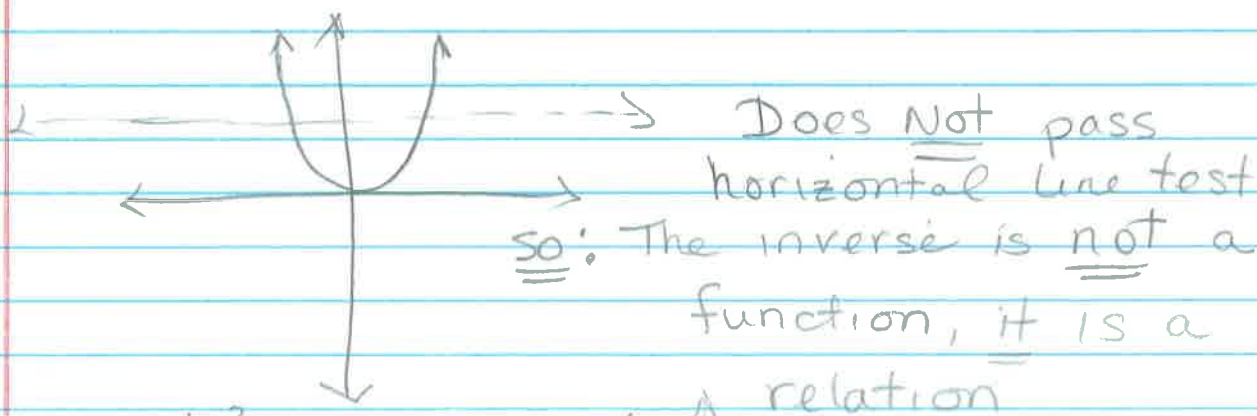 Does Not pass
horizontal line test
so: The inverse is not a
function, it is a
relation